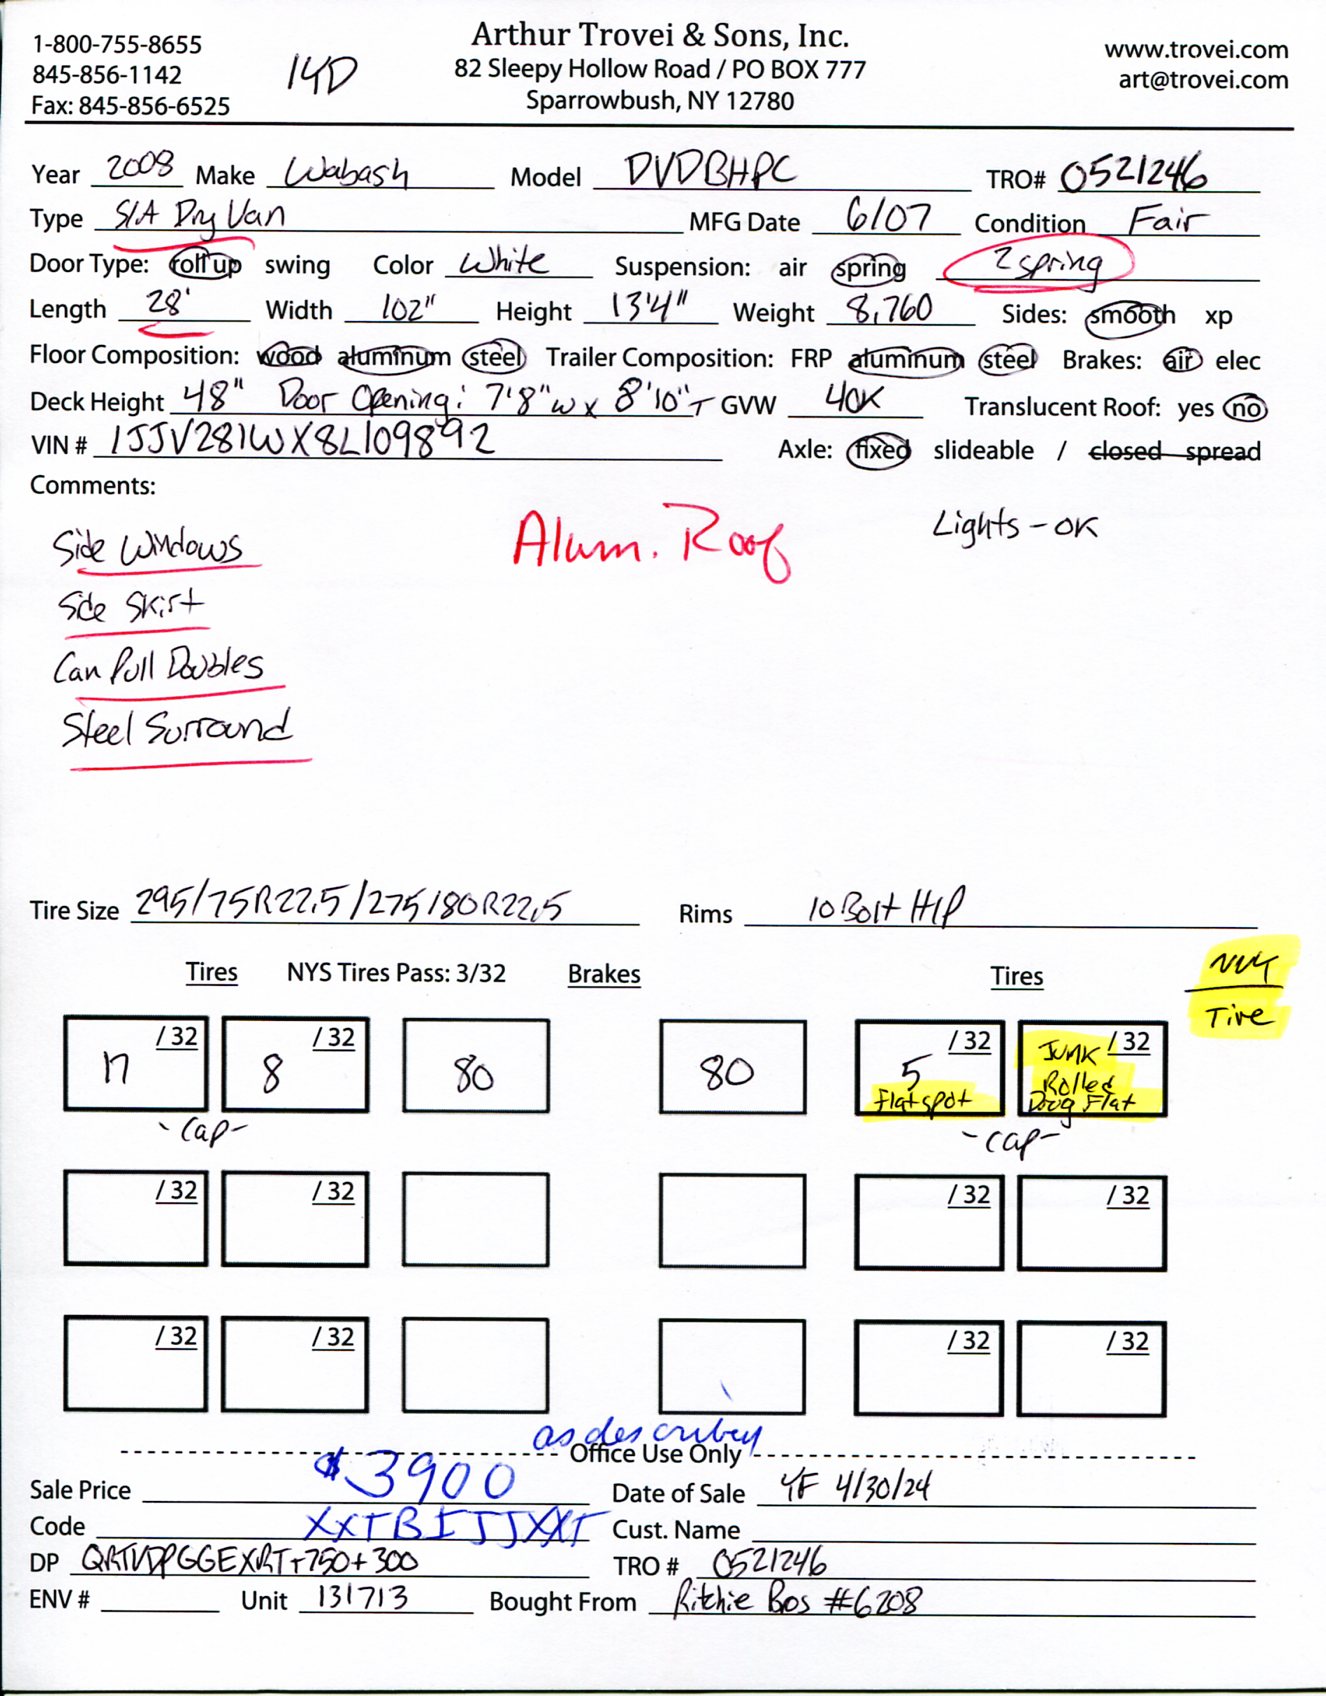 1-800-755-8655
845-856-1142
Fax: 845-856-6525
14D
Arthur Trovei & Sons, Inc.
82 Sleepy Hollow Road / PO BOX 777
Sparrowbush, NY 12780
www.trovei.com
art@trovei.com
Year 2008 Make Wabash Model DVDBHPC TRO# 0521246
Type S/A Dry Van MFG Date 6/07 Condition Fair
Door Type: roll up swing Color White Suspension: air spring 2 spring
Length 28' Width 102" Height 13'4" Weight 8,760 Sides: smooth xp
Floor Composition: wood aluminum steel Trailer Composition: FRP aluminum steel Brakes: air elec
Deck Height 48" Door Opening: 7'8"W x 8'10"T GVW 40K Translucent Roof: yes no
VIN # 1JJV281WX8L109892 Axle: fixed slideable / closed spread
Comments:
Side Windows
Alum. Roof
Lights - OK
Side Skirt
Can Pull Doubles
Steel Surround
Tire Size 295/75R22.5/275/80R22.5 Rims 10 Bolt H/P
Tires NYS Tires Pass: 3/32 Brakes Tires
Tire
/32 8 /32 80 80 5 /32 Junk /32
Flat spot Rolled
Doug Flat
-Cap- -Cap-
/32 /32 /32 /32
/32 /32 /32 /32
Office Use Only
Sale Price $3900 Date of Sale 4/30/24
Code XXTBIJJXXT Cust. Name
DP +750+300 TRO # 0521246
ENV # Unit 131713 Bought From Ritchie Bros #6208